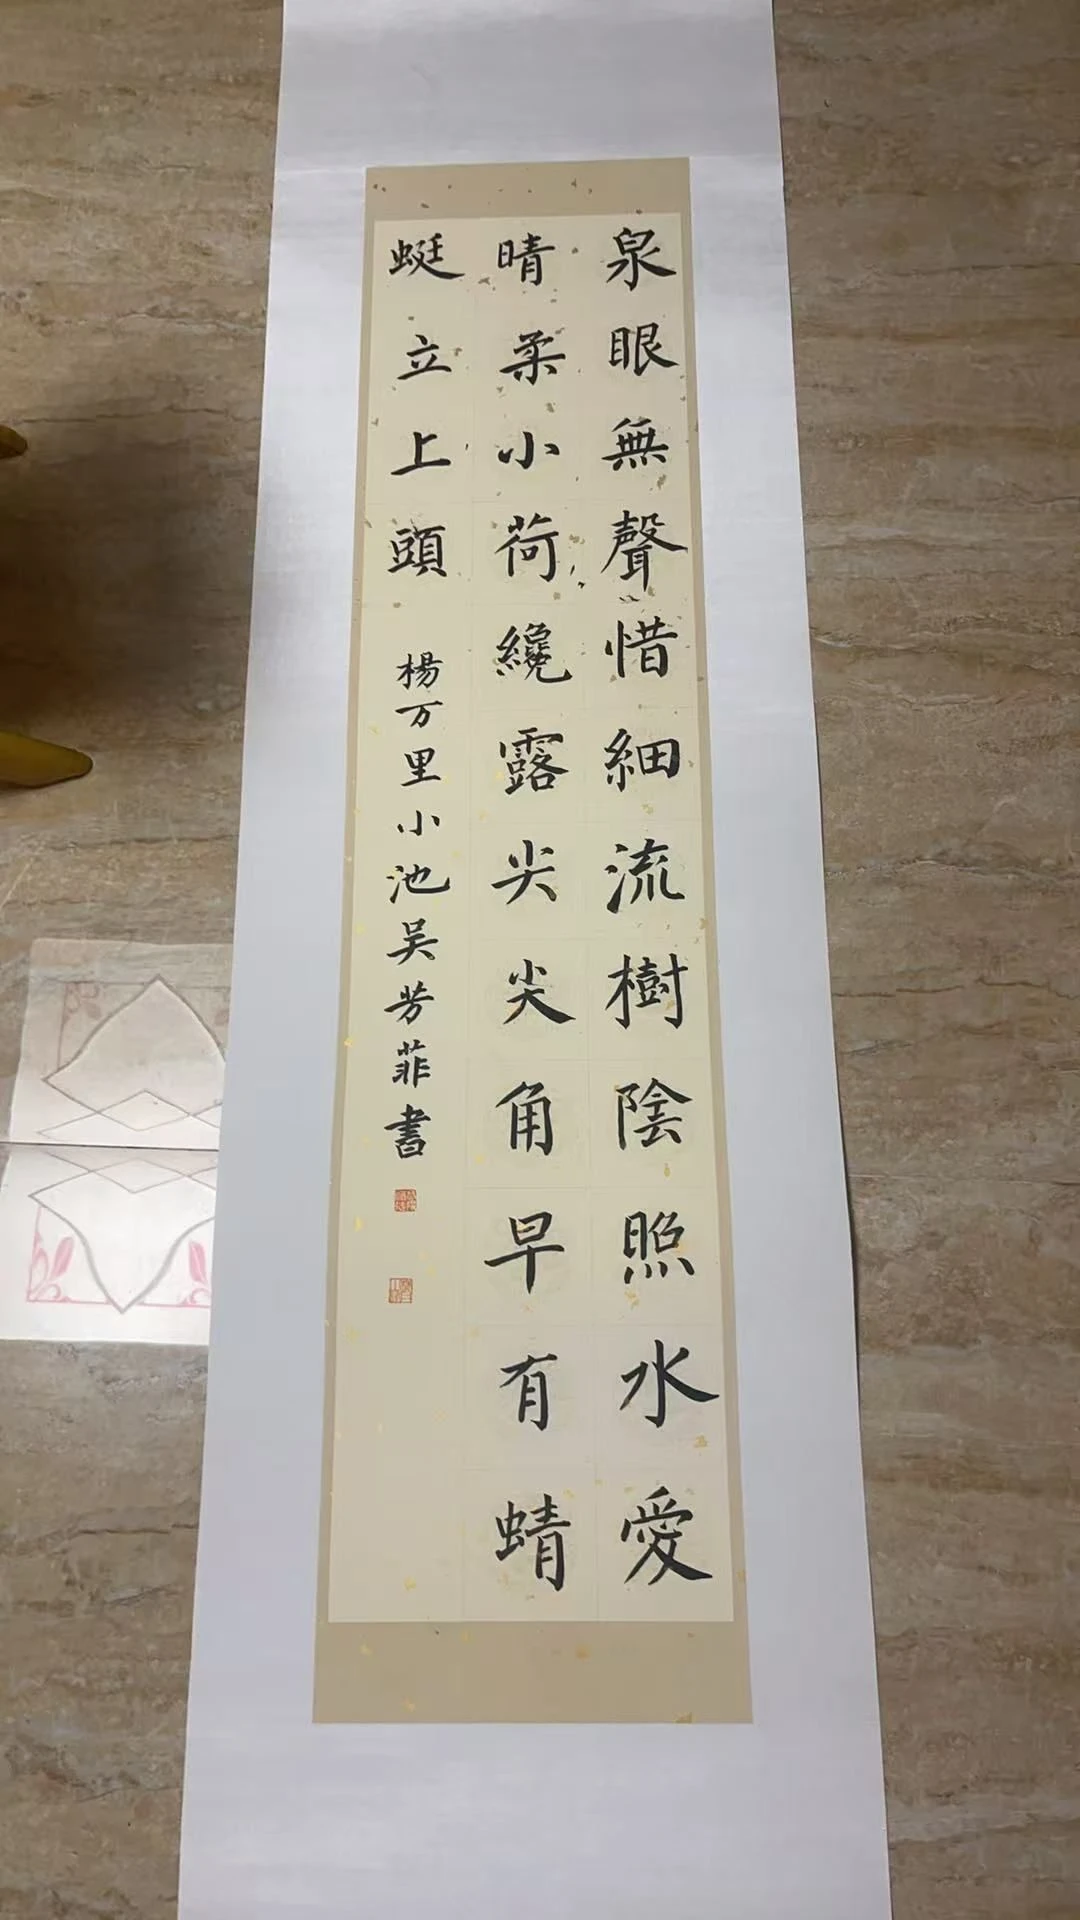 泉眼無聲惜細流樹陰照水愛
晴柔小荷纔露尖尖角早有蜻
蜓立上頭
楊万里小池吴芳菲書